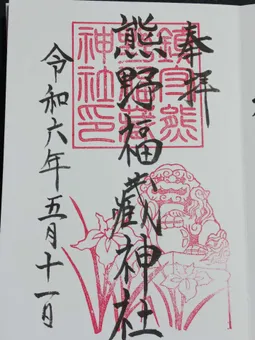 奉拝
鎮守熊
熊野福蔵神社
神社印
令和六年五月十一日